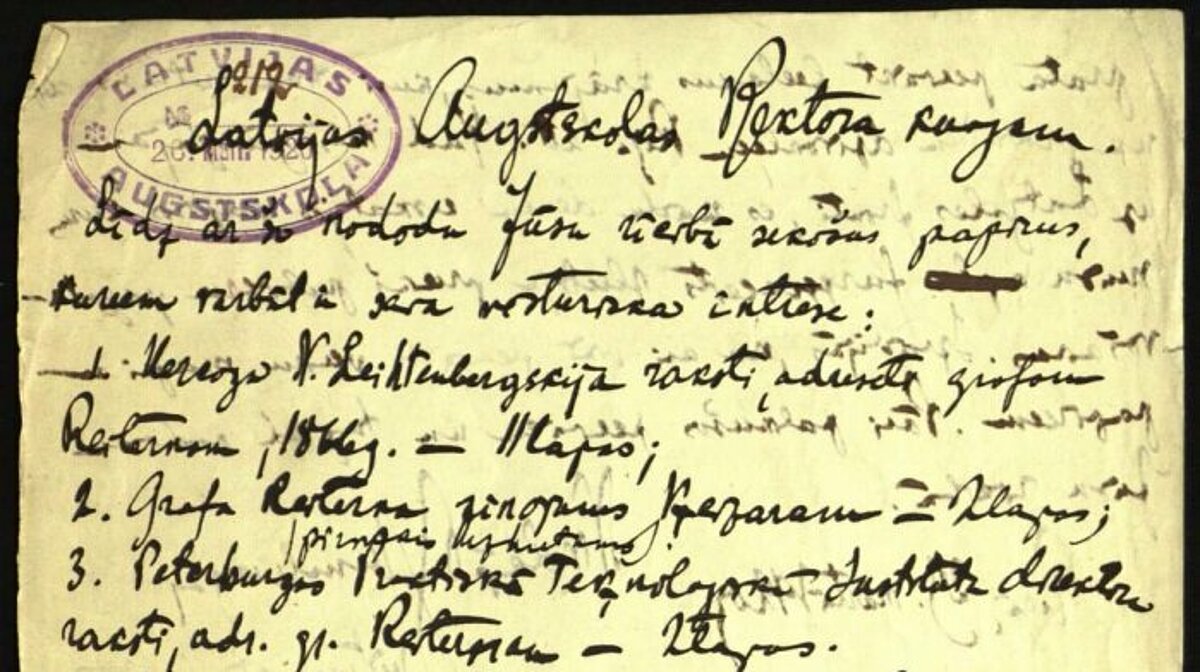 LATVIJAS
AUGSTSKOLA
№ 212
Latvijas Augstskolas Rektora kungam.
Līdz ar šo nododu Jūsu rīcībā sekošus papīrus,
kureem varbūt ir sava vēsturiska intrese:
1. Herzoga N. Leihtenbergskija raksti, adresēts grafam
Reiternam, 1866g. — 11 lapas;
2. Grafa Reiterna ziņojums Ķeizaram — 2 lapas;
(pirmais uzmetums)
3. Peterburgas Praktiskā Teknologiskā Instituta direktora
raksti, adr. gr. Reiternam — 2 lapas.